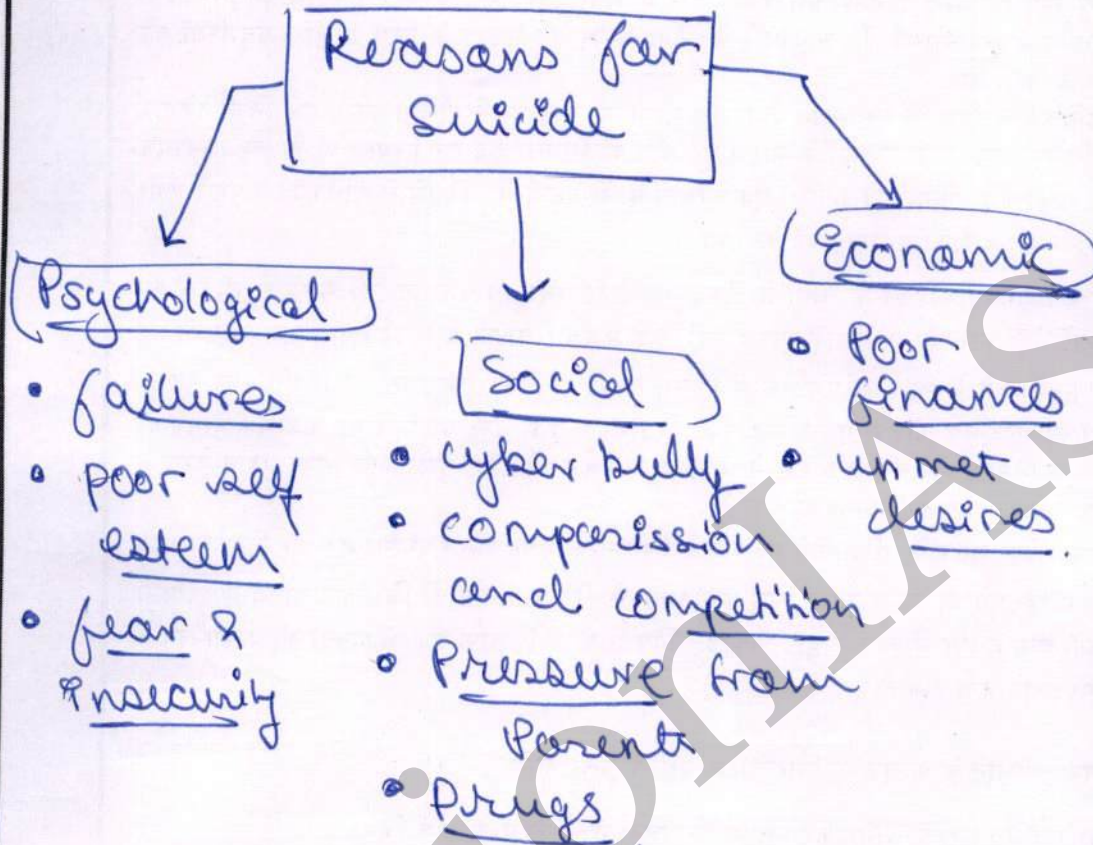 Reasons for
Suicide
Psychological
• failures
• poor self
esteem
• fear &
insecurity
Social
• cyber bully
• comparission
and competition
• Pressure from
Parents
• Drugs
Economic
• Poor
finances
• unmet
desires
ionIAS